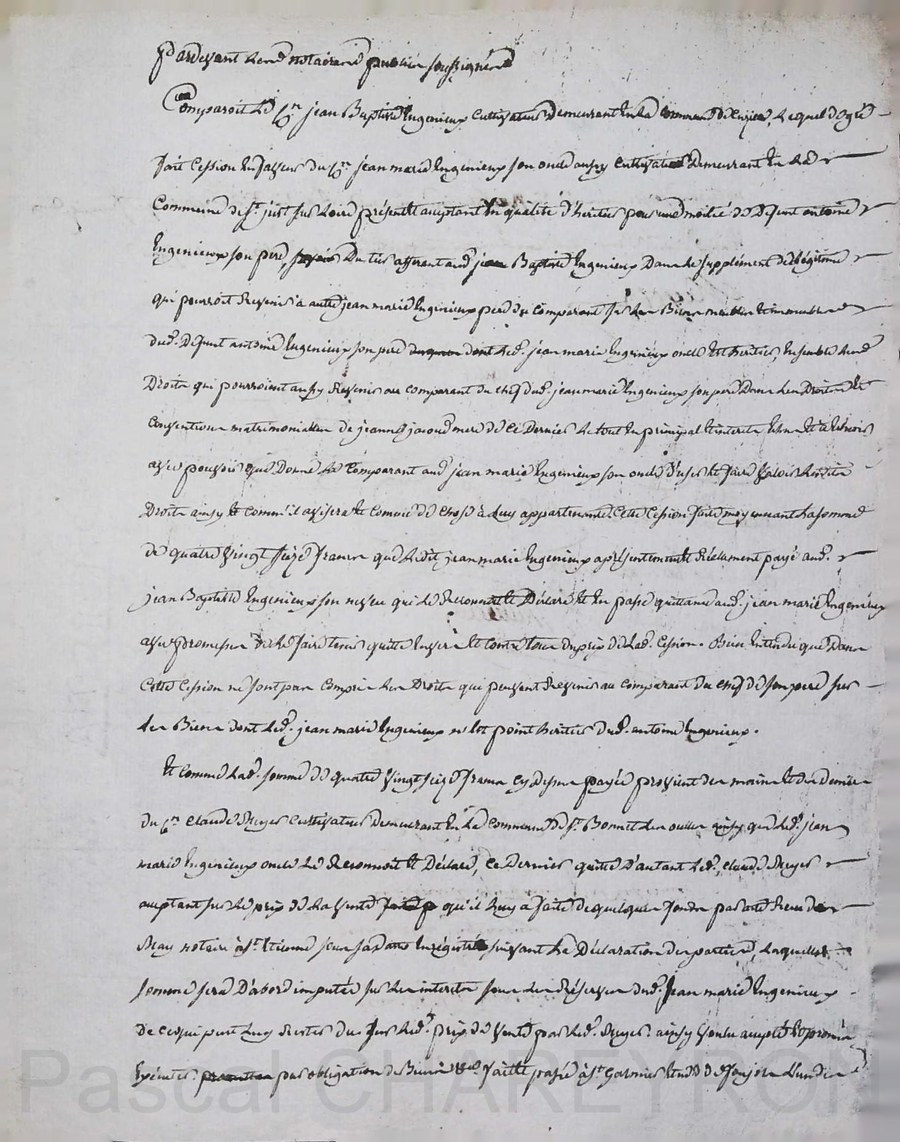 Pardevant Les notaires publics soussignés
Comparoit Le Cn jean Baptiste Ingenieux Cultivateur Demeurant En La Commune de Cuzieu, Lequel De gré
fait Cession En faveur du Cn jean marie Ingenieux son oncle aussy Cultivateur Demeurant En La
Commune de St just sur Loire présent et acceptant En qualité d'heritier pour une moitié de Defunt antoine
Ingenieux son pere, Du tier afferant aud jean Baptiste Ingenieux Dans Le supplement de Légitime
qui pourroit Revenir à autre jean marie Ingenieux pere du Comparant sur Les Biens meubles et immeubles
dud. Defunt antoine Ingenieux son pere dont Led. jean marie Ingenieux oncle Est heritier, Ensemble Les
Droits qui pourroient aussy Revenir au comparant du chef dud. jean marie Ingenieux son pere Dans Les Droits et
Conventions matrimoniales de jeanne jacoud mere de Ce Dernier Le tout En principal et interets
avec pouvoir que Donne Le Comparant aud jean marie Ingenieux son oncle D'user et faire Valoir Lesdits
Droits ainsy et comm'il avisera Et Comme de chose à Luy appartenante Cette Cession faite moyennant La somme
de quatre Vingt seize francs que Ledit jean marie Ingenieux a présentement et Réelement payé aud.
jean Baptiste Ingenieux son neveu qui Le Reconnoit Et Déclare Et En passe quittance aud. jean marie Ingenieux
avec promesse de Le faire tenir quitte Envers Et Contre tous du prix de Lad. Cession. Bien Entendu que Dans
Cette Cession ne sont pas Compris Les Droits qui peuvent Revenir au comparant du chef de son pere sur
Les Biens dont Led. jean marie Ingenieux n'Est point heritier dud. antoine Ingenieux.
Et Comme Lad. somme de quatre Vingt seize francs Cy Dessus payée provient des mains Et des deniers
du Cn Claude Meyer Cultivateur Demeurant En La Commune de St Bonnet Les oulles ainsy que Led. jean
marie Ingenieux oncle Le Reconnoit Et Déclare, Ce Dernier quitte D'autant Led. Claude Meyer
acceptant sur Le prix de La Vente qu'il Luy a faite de quelques fonds par acte Reçu
notaire à St Etienne Enregistré suivant La Déclaration des parties, Laquelle
somme sera D'abord imputée sur Les interets sous Les Réserves dud. Jean marie Ingenieux
de Ce qui peut Luy Rester du sur Led. prix de Vente par Led. Meyer ainsy Voulu accepté Et promis
Exécuter par obligation de Biens fait et passé à St Galmier Etude de
Pascal CHAREYRON